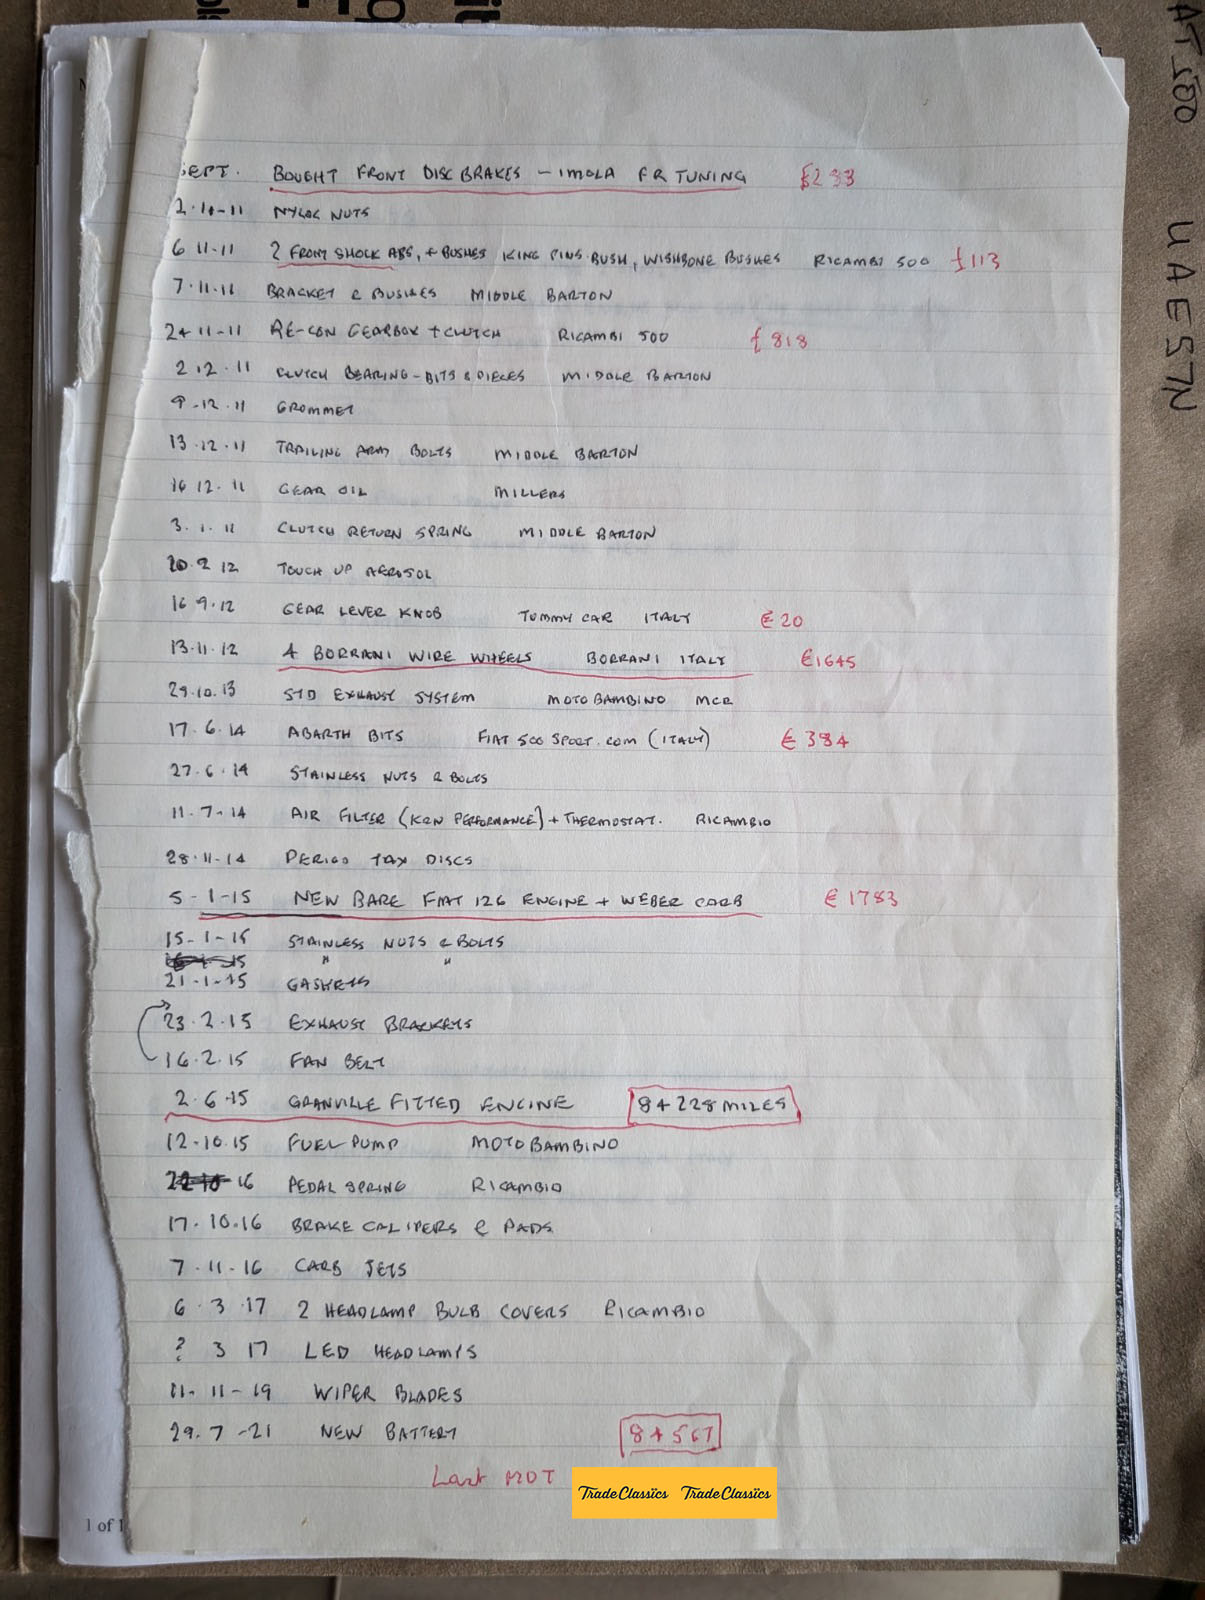 SEPT. BOUGHT FRONT DISC BRAKES - IMOLA FR TUNING £233
2.11-11 NYLOC NUTS
6 11-11 2 FRONT SHOCK ABS, + BUSHES KING PINS BUSH, WISHBONE BUSHES RICAMBI 500 £113
7.11.11 BRACKET & BUSHES MIDDLE BARTON
24 11-11 RE-CON GEARBOX + CLUTCH RICAMBI 500 £818
2 12.11 CLUTCH BEARING - BITS & PIECES MIDDLE BARTON
9-12.11 GROMMET
13.12.11 TRAILING ARM BOLTS MIDDLE BARTON
16 12.11 GEAR OIL MILLERS
3.1.11 CLUTCH RETURN SPRING MIDDLE BARTON
20.2 12 TOUCH UP AEROSOL
16 9.12 GEAR LEVER KNOB TUMMY CAR ITALY €20
13.11.12 4 BORRANI WIRE WHEELS BORRANI ITALY €1645
29.10.13 STD EXHAUST SYSTEM MOTO BAMBINO MCR
17.6.14 ABARTH BITS FIAT 500 SPORT.COM (ITALY) €384
27.6.14 STAINLESS NUTS & BOLTS
11.7-14 AIR FILTER (K&N PERFORMANCE) + THERMOSTAT. RICAMBIO
28.11-14 PERIOD TAX DISCS
5-1-15 NEW BARE FIAT 126 ENGINE + WEBER CARB €1783
15-1-15 STAINLESS NUTS & BOLTS
" "
21-1-15 GASKETS
23.2.15 EXHAUST BRACKETS
16.2.15 FAN BELT
2.6.15 GRANVILLE FITTED ENGINE 84228 MILES
12-10.15 FUEL PUMP MOTO BAMBINO
16 PEDAL SPRING RICAMBIO
17.10.16 BRAKE CALIPERS & PADS
7-11-16 CARB JETS
6.3.17 2 HEADLAMP BULB COVERS RICAMBIO
? 3 17 LED HEADLAMPS
11-11-19 WIPER BLADES
29.7-21 NEW BATTERY 84567
Last MOT
TradeClassics TradeClassics
1 of 1